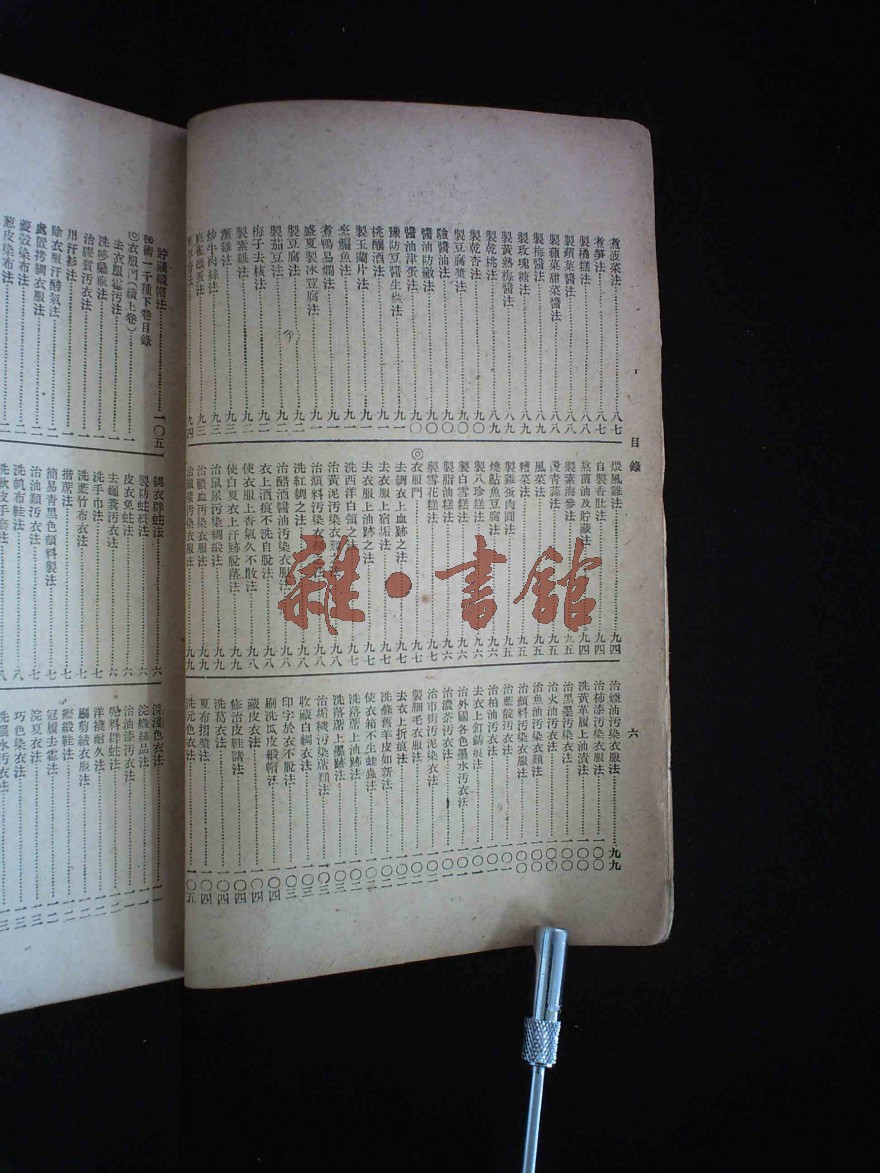 目錄
六
煮菠菜法…八七
煮筍法…八七
製橘糕法…八八
製蘋菓醬法…八八
製蘋菓甜菜醬法…八八
製梅醬法…八九
製玫瑰糖法…八九
製黃熟梅醬法…八九
製乾桃法…八九
製乾杏法…九〇
製豆腐漿法…九〇
驗醬油法…九〇
醬油防黴法…九〇
醬油津蛋法…九〇
豫防豆醬生蟲法…九一
桃釀酒法…九一
製玉蘭片法…九一
烹鯿魚法…九一
煮鴨易爛法…九一
盛夏製冰豆腐法…九一
製豆腐法…九二
製茄豆法…九二
梅子去核法…九二
製素雞法…九二
薰雞法…九三
炒牛肉絲法…九三
煨風雞法…九四
自製香肚法…九四
蒸菌油及貯藏法…九四
製素海參法…九五
漫青蒜法…九五
風菜法…九五
糟菜法…九五
製雞蛋肉圓法…九五
燒鮎魚豆腐法…九六
製八珍糕法…九六
製白雪糕法…九六
製脂油糕法…九六
製雪花糕法…九七
◎衣服門…九七
去綢衣上血跡之法…九七
去衣服上宿垢法…九七
去衣服上油跡之法…九七
洗西洋白領之法…九七
治黃泥污染衣
治顏料污染衣
洗紅綢之法…九八
治醋酒醬油污染衣服法…九八
衣上酒痕不洗自脫法…九八
使衣服上香氣久不散法…九八
使白夏衣上汗跡脫落法…九九
治鼠尿污染綢緞法…九九
治膿血污染衣服法…九九
治煙油污染衣服法…九九
治柿漆污染衣服法…一〇〇
洗黃革履上油漬法…一〇〇
治黑墨污染衣法…一〇〇
治火油污染衣法…一〇〇
治魚油污染衣類法…一〇〇
治顏料污染衣服法…一〇〇
治藍靛污染衣法…一〇〇
治柏油污染衣法…一〇一
去衣上釘銹痕法…一〇一
治外國各色墨水污衣法…一〇一
治濃茶污染衣法…一〇一
治市街污泥染衣法…一〇二
製細毛衣服法…一〇二
去衣上折痕法…一〇二
洗滌舊羊皮如新法…一〇二
使衣箱不生蛀蟲法…一〇二
洗落蓆上油跡法…一〇二
洗落蓆上墨跡法…一〇三
治垢穢污染蓆類法…一〇三
收藏白綢衣法…一〇三
印字於衣不脫法…一〇三
刷洗瓜皮緞帽法…一〇四
藏皮衣法…一〇四
修治皮鞋諸法…一〇四
洗葛衣法…一〇四
夏布摺漿法…一〇四
洗元色衣法…一〇五
貯藏氈帽法…一〇五
秘術一千種下卷目錄
◎衣服門（續上卷）
去衣服霉污法…一
洗嗶嘰法…一
治膠質污衣法…一
用汗衫法…一
除衣服汗酸氣法…一
處置拷綢衣服法…一
薆殼染布法…一
葱皮染布法…一
綢衣辟蛀法…六
製防蛀紙法…六
皮衣免蛀法…六
去蠅糞污衣法…六
洗手巾法…六
洗藍竹布衣法…七
揩蓆法…七
簡易青黑色顏料製法…七
治油類污衣法…七
洗帆布鞋法…七
洗軟皮手套法…八
浣淺色衣法
浣機絲品法
治油漆污衣法
呢料辟蛀法
洋襪耐久法
刷剪絨衣服法
癒緞鞋法
冠履去霉法
浣夏衣法
巧色染衣法
洗墨水污衣法
雜·書館